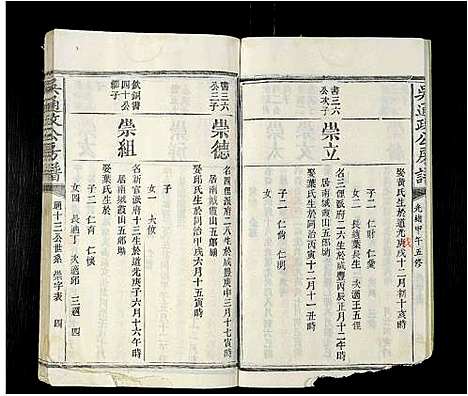 吳通政公房譜
光緒甲午五修
娶黃氏生於道光庚戌十二月初十亥時
子二 仁財 仁棠
女二 長適葉長生 次適王五俚
書三六公次子
崇立
名三俚派府二六生於咸豐丙辰正月十二午時
居南城霞山五郎場
娶葉氏生於同治丙寅十二月十一丑時
子二 仁尚 仁澗
書三六公三子
崇德
名四俚派府二八生於咸豐庚申三月十七寅時
居南城霞山五郎場
娶邱氏生於同治甲戌六月十五寅時
子
女一 大孜
欽銅書四十公繼子
崇組
名新官派府十一生於道光庚子六月十六午時
居南城霞山五郎場
娶葉氏生
子二 仁有 仁懷
女四 長適吳 次適邱 三適 四
吳通政公房譜
崇字表
四